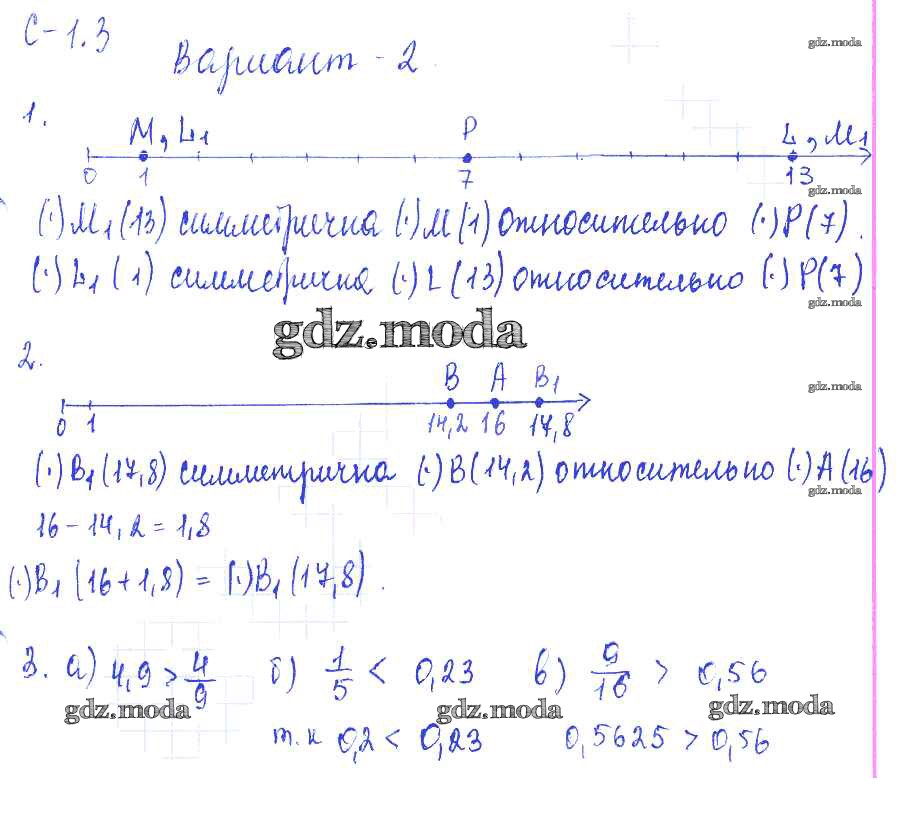 С-1.3
gdz.moda
Вариант - 2.
1.
M, L1 P L, M1
0 1 7 13
gdz.moda
(·) M1 (13) симметрична (·) M (1) относительно (·) P (7).
(·) L1 (1) симметрична (·) L (13) относительно (·) P (7)
gdz.moda
gdz.moda
2.
gdz.moda
B A B1
0 1 14,2 16 17,8
(·) B1 (17,8) симметрична (·) B (14,2) относительно (·) A (16)
gdz.moda
16 - 14,2 = 1,8
(·) B1 (16 + 1,8) = (·) B1 (17,8).
3. а) 4,9 > 4/9 б) 1/5 < 0,23 в) 9/16 > 0,56
gdz.moda gdz.moda gdz.moda
т.к 0,2 < 0,23 0,5625 > 0,56